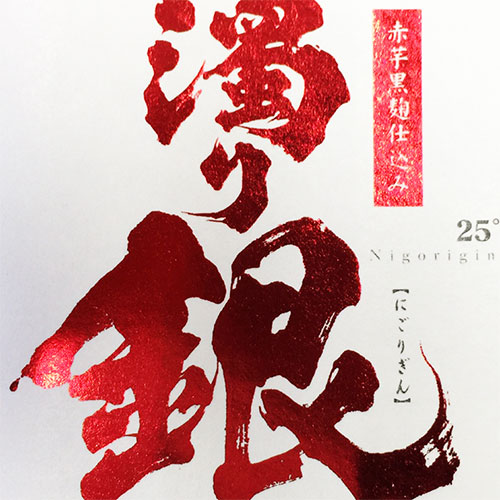 赤芋黒麹仕込み
濁り銀
25°
Nigorigin
【にごりぎん】